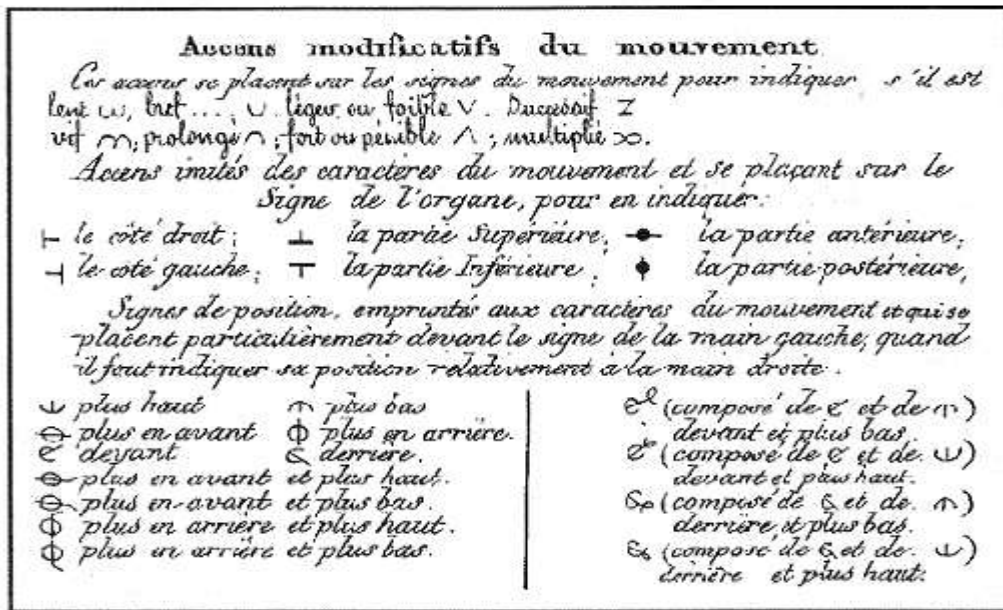 Accens modificatifs du mouvement
Ces accens se placent sur les signes du mouvement pour indiquer, s'il est
lent ω, bref .... ∪. léger ou foible ∨. Successif Z
vif m; prolongé ∩; fort ou penible ∧; multiplié ∞.
Accens imités des caractères du mouvement et se plaçant sur le
Signe de l'organe, pour en indiquer:
⊢ le côté droit; ⊥ la partie Supérieure; la partie antérieure;
⊣ le coté gauche; ⊤ la partie Inférieure; la partie postérieure,
Signes de position, empruntés aux caractères du mouvement et qui se
placent particulièrement devant le signe de la main gauche, quand
il fout indiquer sa position relativement à la main droite.
plus haut plus bas
plus en avant plus en arrière.
devant derrière.
plus en avant et plus haut.
plus en avant et plus bas.
plus en arrière et plus haut.
plus en arrière et plus bas.
(composé de et de )
devant et plus bas.
(composé de et de )
devant et plus haut.
(composé de et de )
derrière, et plus bas.
(composé de et de )
derrière et plus haut.